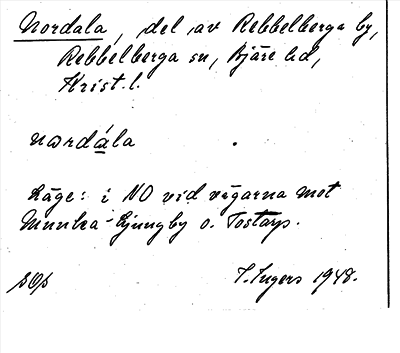 Nordala, del av Rebbelberga by,
Rebbelberga sn, Bjäre hd,
Krist. l.
nordála
Läge: i NO vid vägarna mot
Munka-Ljungby o. Tostarp.
sOp I. Ingers 1948.